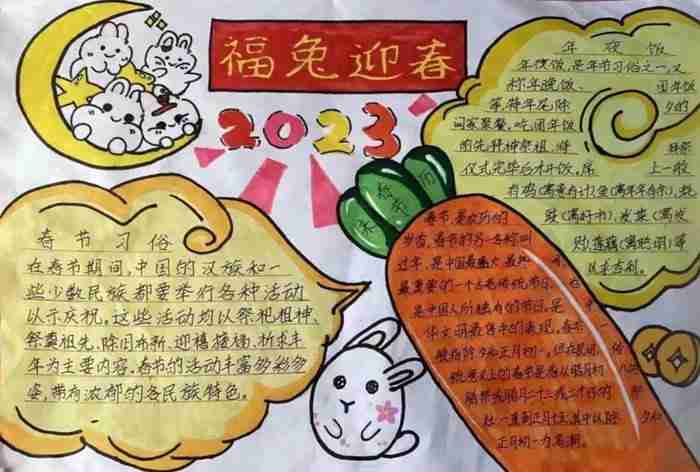 福兔迎春
2023
春节习俗
在春节期间,中国的汉族和一
些少数民族都要举行各种活动
以示庆祝。这些活动均以祭祀祖神、
祭奠祖先、除旧布新、迎禧接福、祈求丰
年为主要内容。春节的活动丰富多彩多
姿,带有浓郁的各民族特色。
年夜饭
年夜饭,是年节习俗之一,又
称年晚饭、团年饭
等,特年尾除夕的
阖家聚餐。吃团年饭
前先拜神祭祖,
仪式完毕后才开饭。席上一般
有鸡(寓意有计)、鱼(寓年年有余)、
豉(寓好市)、发菜(寓发
财)、莲藕(寓聪明)等
以求吉利。
春节
春节是农历的
岁首,春节的另一名称叫
过年,是中国最盛大、最热
最重要的一个古老传统节日。也
是中国人所独有的节日。是中
华文明最集中的表现。春节
般指除夕和正月初一。但在民间,
统意义上的春节是指从腊月初八
腊祭或腊月二十三或二十四的
灶,一直到正月十五,其中以除夕和
正月初一为高潮。